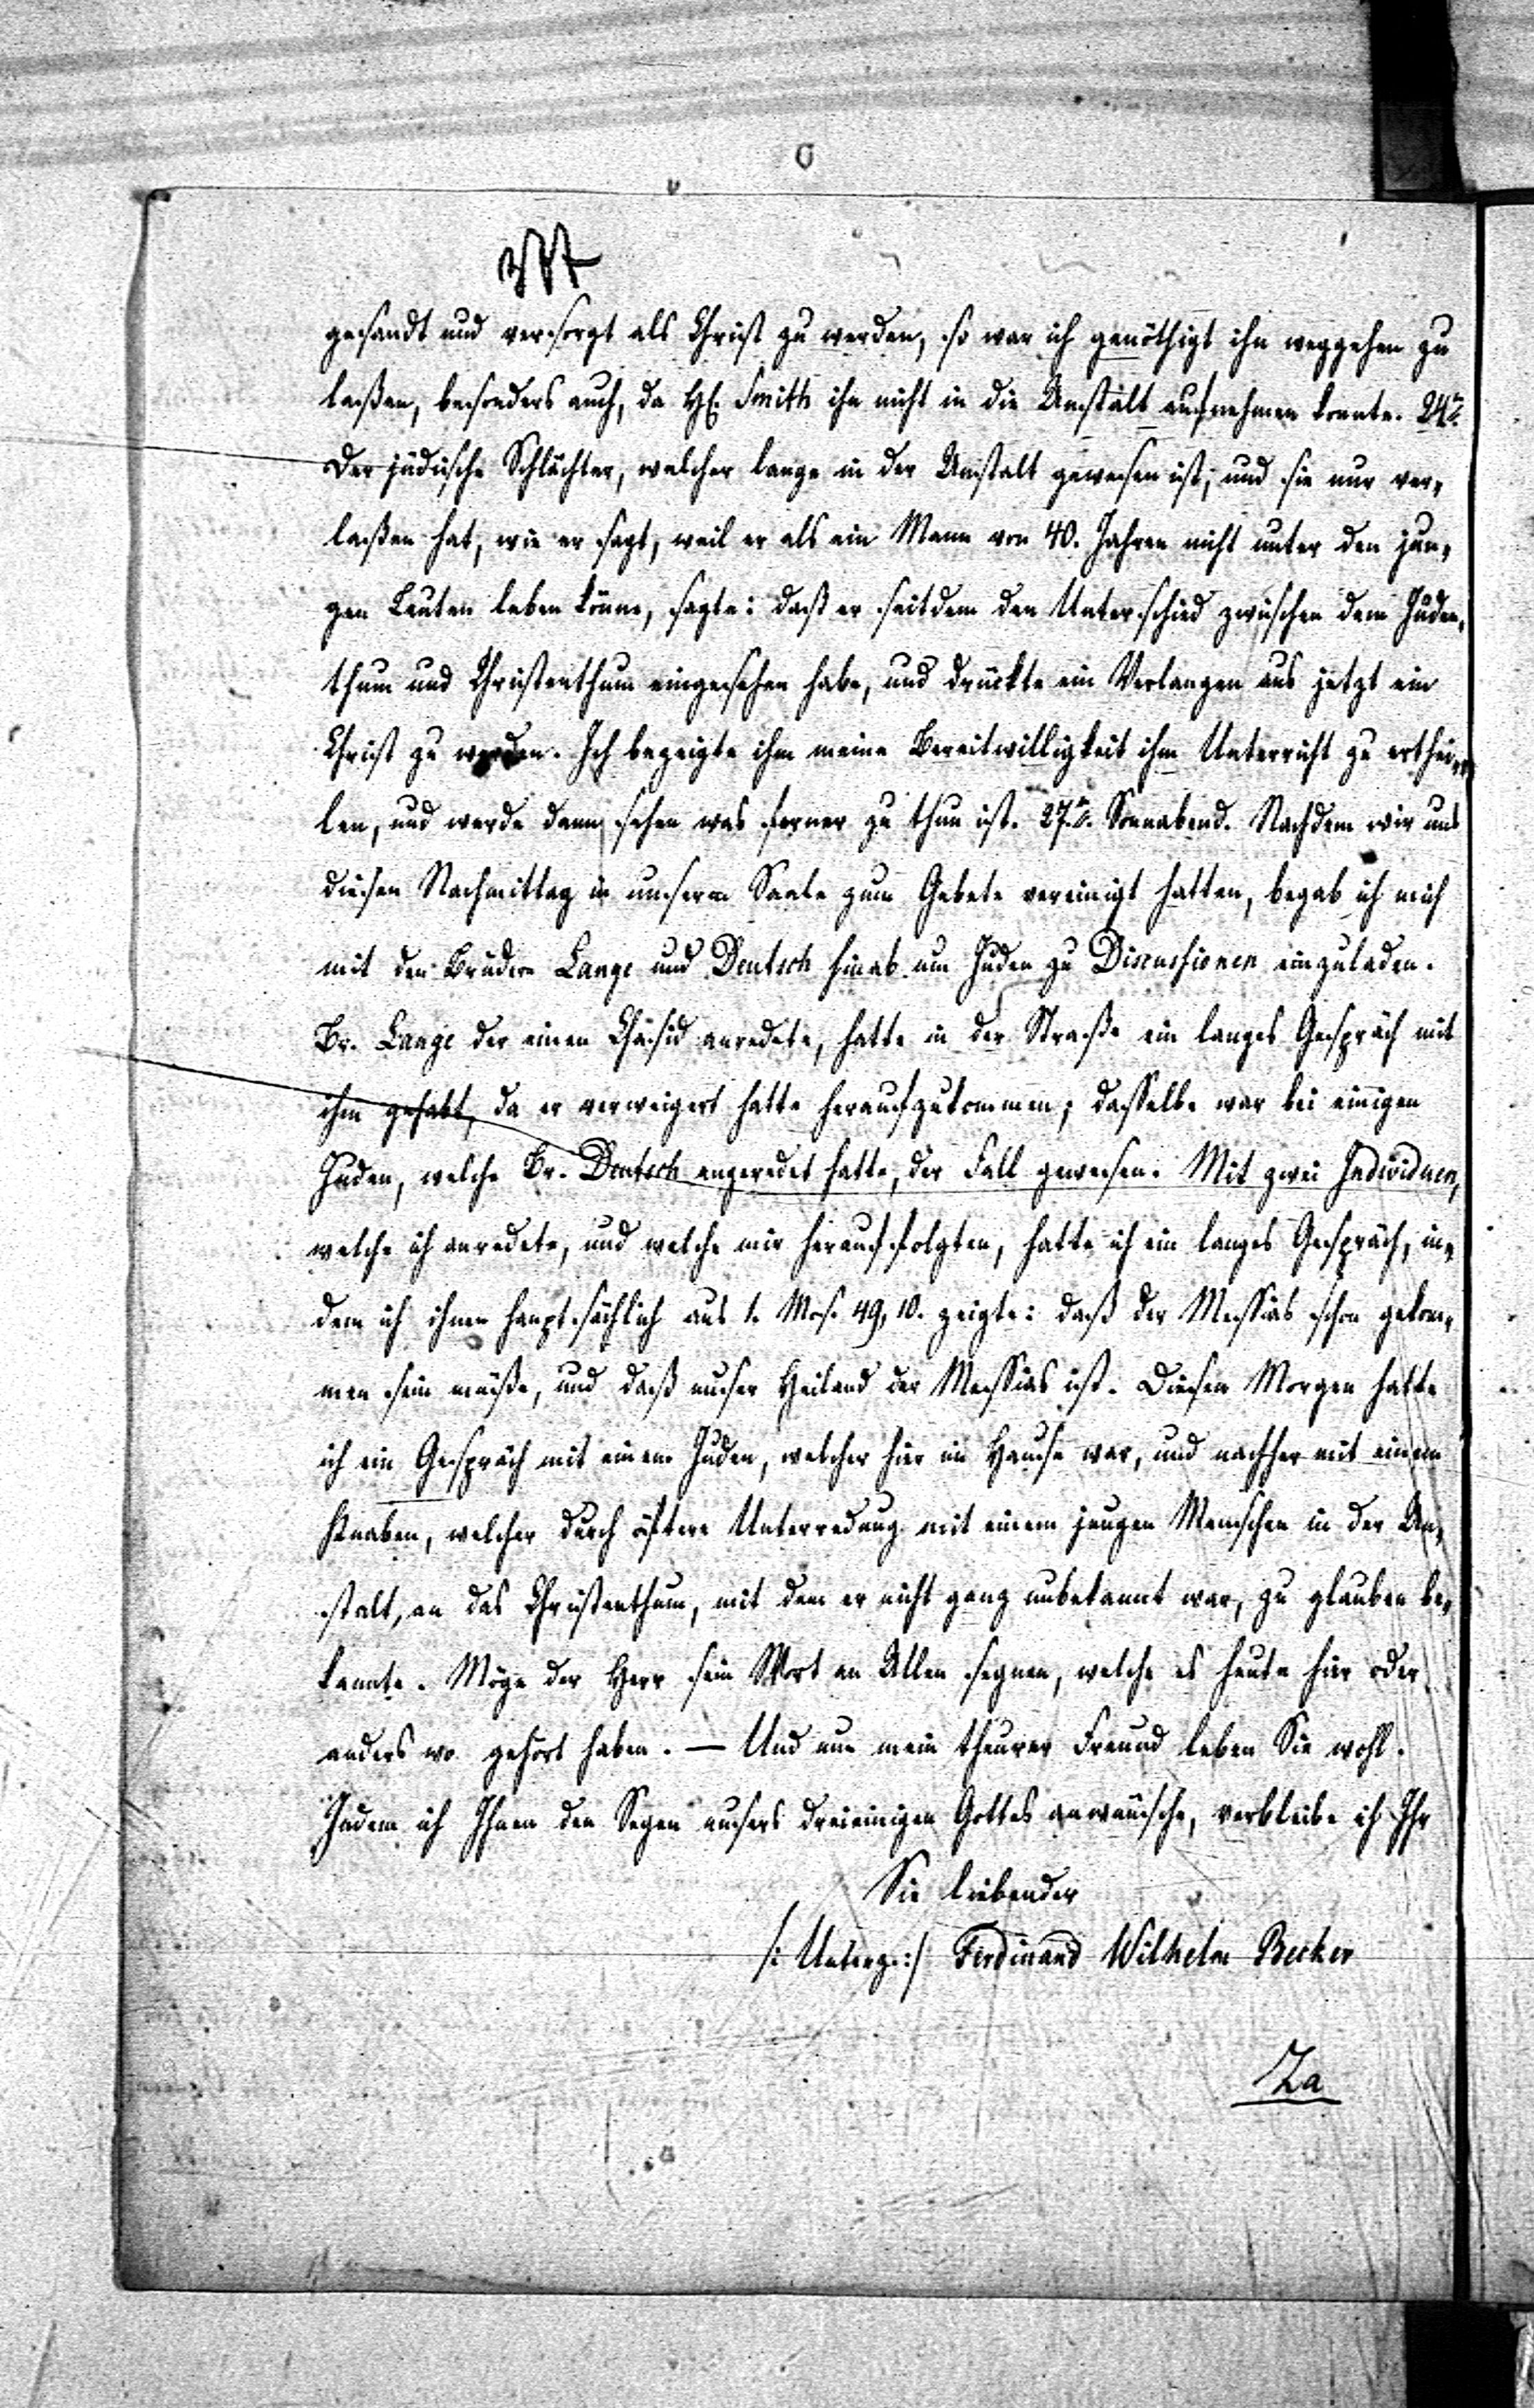 gesandt und versorgt als Christ zu werden, so war ich genöthigt ihn weggehen zu
laßen, besonders auch, da H. Smith ihn nicht in die Anstalt aufnehmen konnte. 24n.
Der jüdische Schlächter, welcher lange in der Anstalt gewesen ist, und sie nur ver-
laßen hat, wie er sagt, weil er als ein Mann von 40. Jahren nicht unter den jun-
gen Leuten leben könne, sagte: daß er seitdem den Unterschied zwischen dem Juden-
thum und Christenthum eingesehen habe, und drückte ein Verlangen aus jetzt ein
Christ zu werden. Ich bezeigte ihm meine Bereitwilligkeit ihm Unterricht zu erthei-
len, und werde dann sehen was ferner zu thun ist. 27n. Sonnabend. Nachdem wir uns
diesen Nachmittag in unserm Saale zum Gebete vereinigt hatten, begab ich mich
mit den Brüdern Lange und Deutsch hinab um Juden zu Discussionen einzuladen.
Br. Lange der einen Chasid anredete, hatte in der Straße ein langes Gespräch mit
ihm gehabt, da er verweigert hatte heraufzukommen; dasselbe war bei einigen
Juden, welche Br. Deutsch angeredet hatte, der Fall gewesen. Mit zwei Individuen,
welche ich anredete, und welche mir herauffolgten, hatte ich ein langes Gespräch, in-
dem ich ihnen hauptsächlich aus 1. Mos. 49, 10. zeigte: daß der Messias schon gekom-
men sein müße, und daß unser Heiland der Messias ist. Diesen Morgen hatte
ich ein Gespräch mit einem Juden, welcher hier im Hause war, und nachher mit einem
Knaben, welcher durch öftere Unterredung mit einem jungen Menschen in der An-
stalt, an das Christenthum, mit dem er nicht ganz unbekannt war, zu glauben be-
kannte. Möge der Herr sein Wort an Allen segnen, welche es heute hier oder
anders wo gehört haben. — Und nun mein theurer Freund leben Sie wohl.
Indem ich Ihnen den Segen unsers dreieinigen Gottes anwünsche, verbleibe ich Ihr
Sie liebender
/: Unterz. :/ Ferdinand Wilhelm Becker